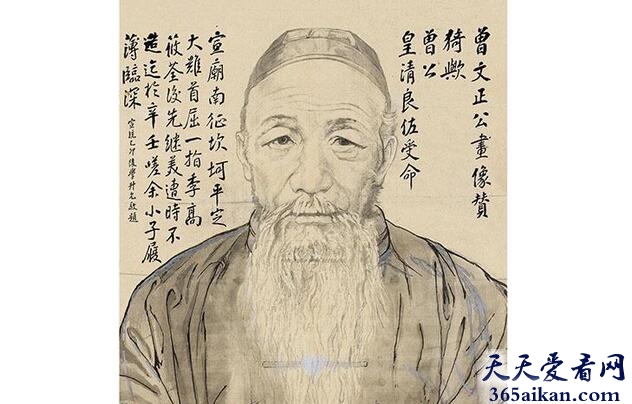 曾文正公畫像贊
猗歟
曾公
皇清良佐受命
宣廟南征坎坷平定
大難首屈一指李高
筱荃後先継美遭時不
造迄於辛壬嗟余小子履
薄臨深
宣統乙卯後學升允敬題
天天爱看网
365aikan.com